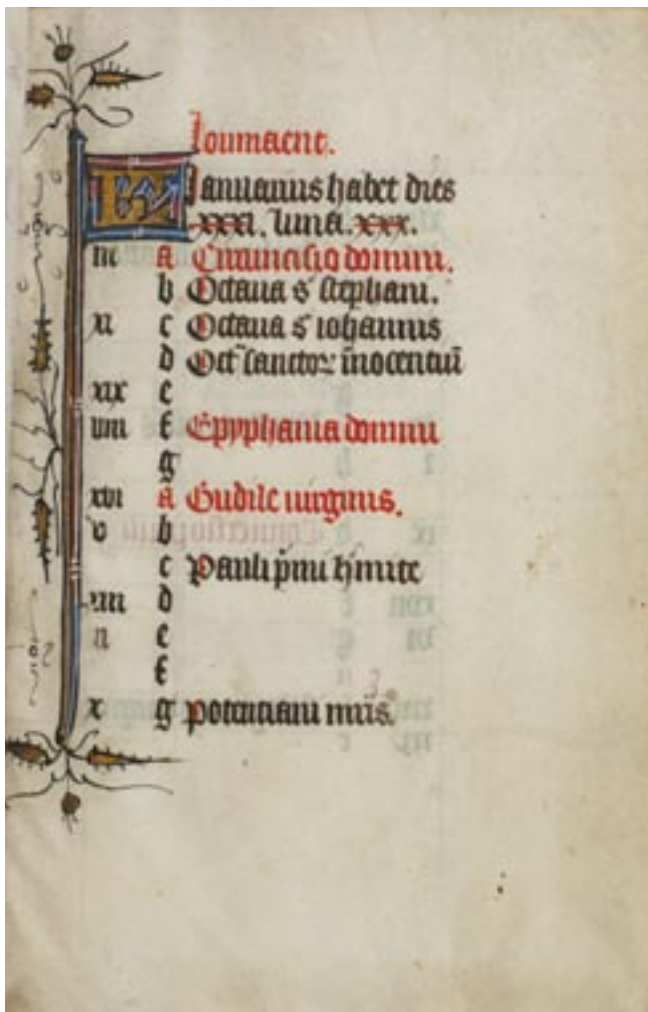 Loumaent.
KL Januarius habet dies
xxxi. luna. xxx.
iii a Circuncisio domini.
b Octaua s stephani.
xi c Octaua s iohannis
d Oct sanctor inocentiū
xix e
viii f Epyphania domini
g
xvi a Gudile uirginis.
v b
c Pauli pmi hmite
xiii d
ii e
f
x g potentiani mris.